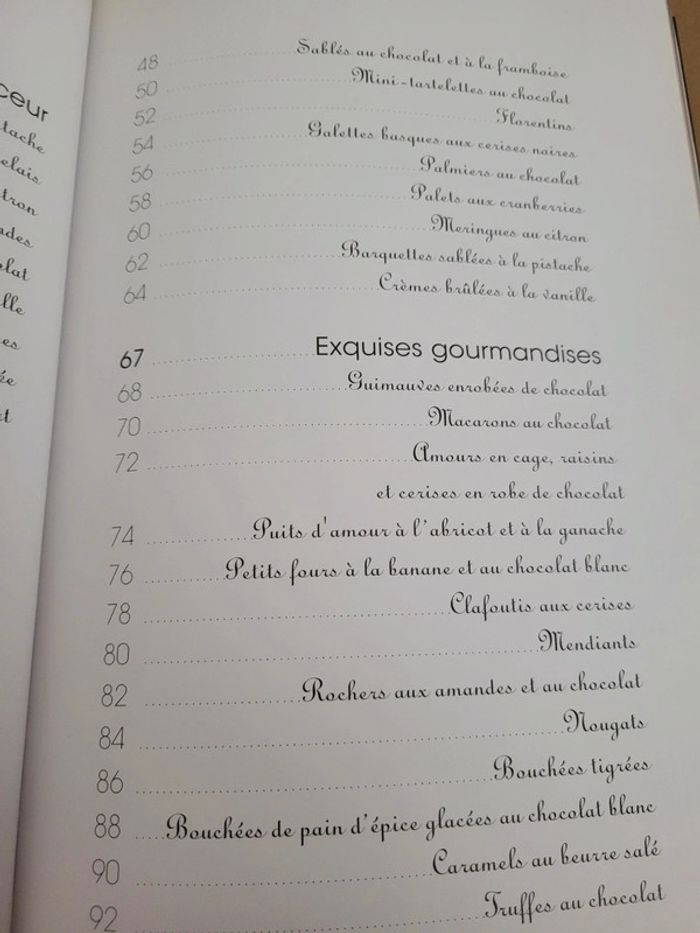 ceur
tache
elais
tron
ades
olat
lle
es
ée
at
48 Sablés au chocolat et à la framboise
50 Mini-tartelettes au chocolat
52 Florentins
54 Galettes basques aux cerises noires
56 Palmiers au chocolat
58 Palets aux cranberries
60 Meringues au citron
62 Barquettes sablées à la pistache
64 Crèmes brûlées à la vanille
67 Exquises gourmandises
68 Guimauves enrobées de chocolat
70 Macarons au chocolat
72 Amours en cage, raisins
et cerises en robe de chocolat
74 Puits d'amour à l'abricot et à la ganache
76 Petits fours à la banane et au chocolat blanc
78 Clafoutis aux cerises
80 Mendiants
82 Rochers aux amandes et au chocolat
84 Nougats
86 Bouchées tigrées
88 Bouchées de pain d'épice glacées au chocolat blanc
90 Caramels au beurre salé
92 Truffes au chocolat